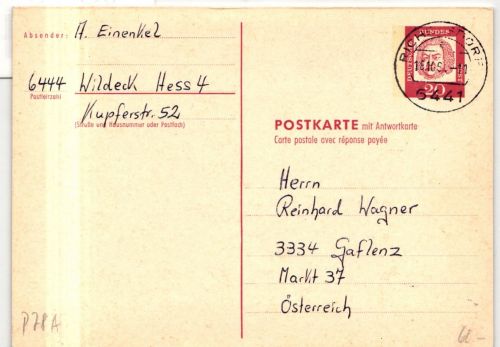 Absender: A. Einenkel
6444 Wildeck Hess 4
Postleitzahl
Kupferstr. 52
(Straße und Hausnummer oder Postfach)
DEUTSCHE BUNDESPOST
20
6441
POSTKARTE mit Antwortkarte
Carte postale avec réponse payée
Herrn
Reinhard Wagner
3334 Gaflenz
Markt 37
Österreich
P78A